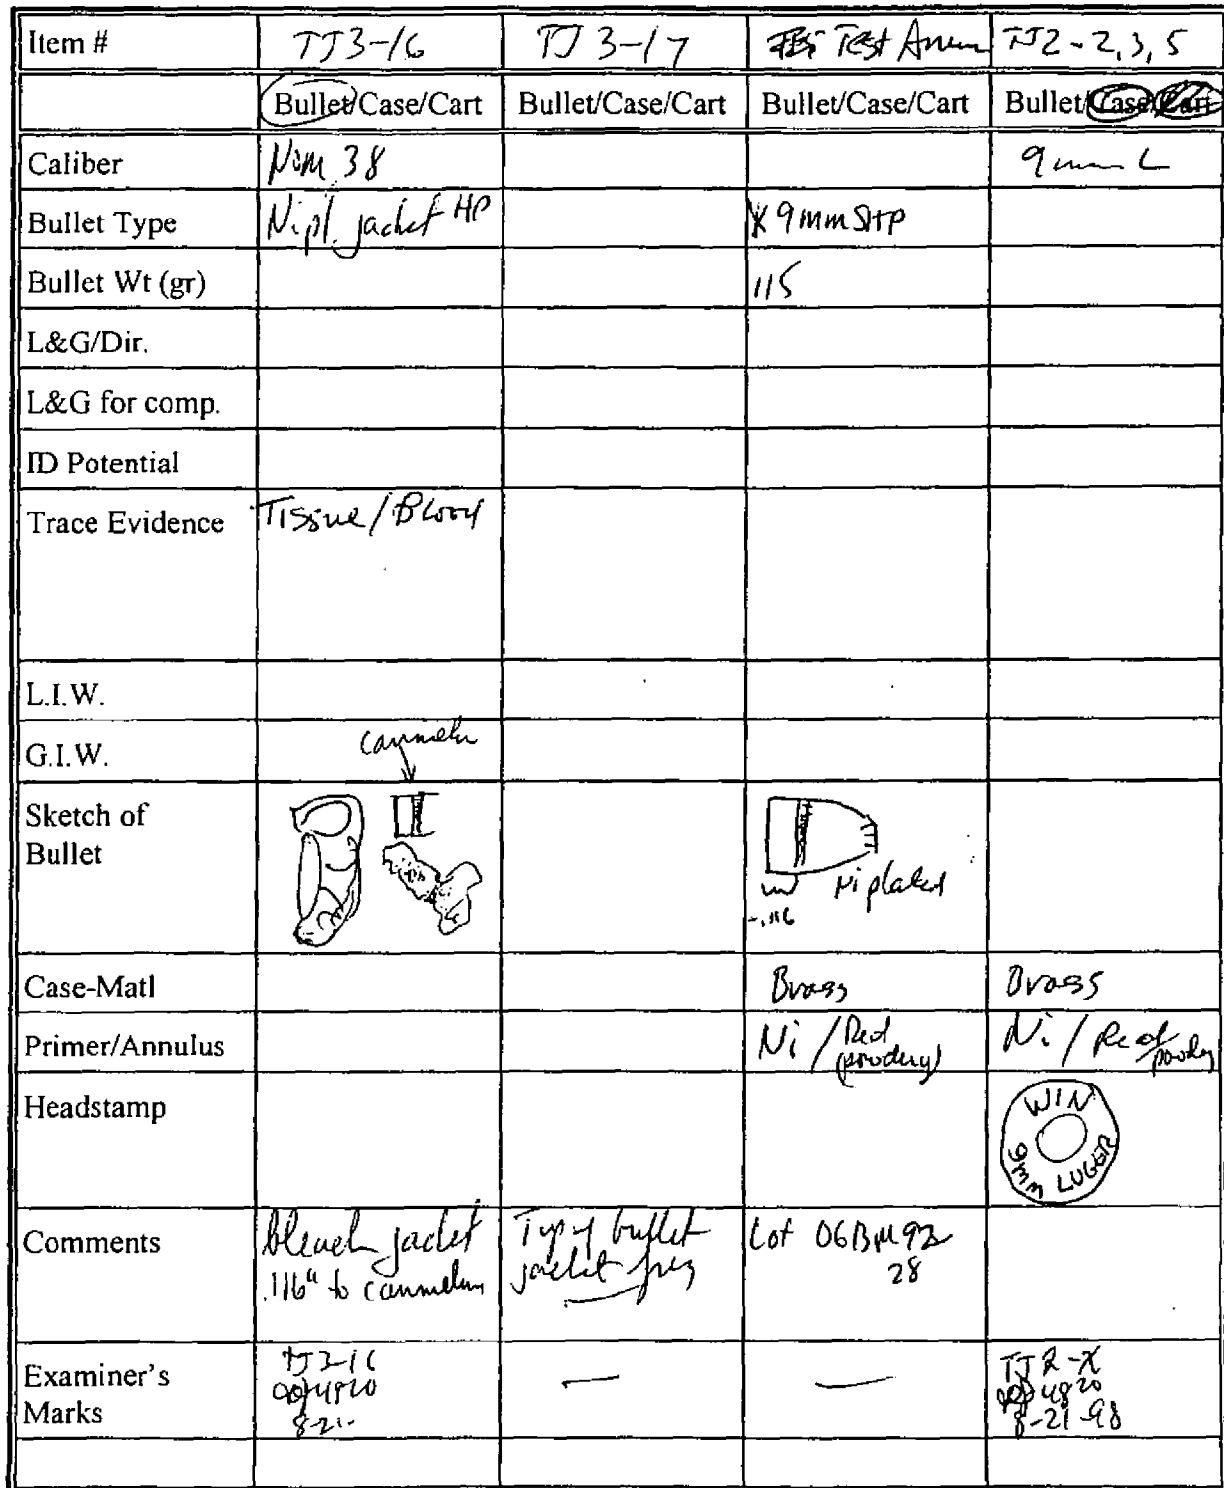 Item # TJ3-16 TJ 3-17 Test Amm TJ2-2,3,5
Bullet/Case/Cart Bullet/Case/Cart Bullet/Case/Cart Bullet/Case/Cart
Caliber Nom 38 9mm L
Bullet Type Ni pl. jacket HP 9mm SHP
Bullet Wt (gr) 115
L&G/Dir.
L&G for comp.
ID Potential
Trace Evidence Tissue/Blood
L.I.W.
G.I.W.
cannelure
Sketch of
Bullet
Ni plated
.116
Case-Matl Brass Brass
Primer/Annulus Ni / Red (powdery) Ni / Red
Headstamp WIN 9mm LUGER
Comments bleach jacket Top of bullet Lot 06BM92
.116" to cannelure jacket frag 28
Examiner's
Marks
TJ3-16 — — TJ2-X
4820 4820
8-21- 8-21-98